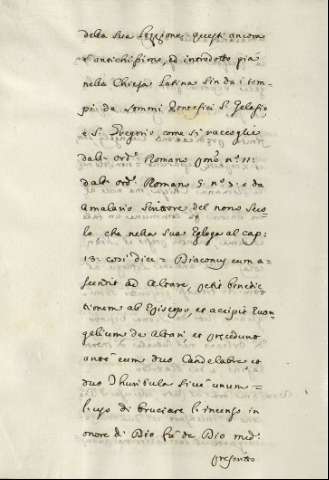 della sua lezzione, questi ancora
è antichissimo, ed introdotto già
nella Chiesa Latina sin da i tem-
pi da sommi Pontefici S. Gelasio
e S. Gregorio, come si raccoglie
dall' ord: Romano pmo n.° 11:
dall' ord: Romano 5. n.° 3: e da
Amalario Scrittore del nono Seco-
lo che nella sua Egloga al cap:
13: così dice = Diaconus cum a-
scendit ad Altare, petit benedic-
tionem ab Episcopo, et accipit Evan-
gelium de Altari, et procedunt
ante eum duo Candelabra et
duo Thuribula sive unum =
L'uso di bruciare l'incenso in
onore di Dio fù da Dio med:
prescritto